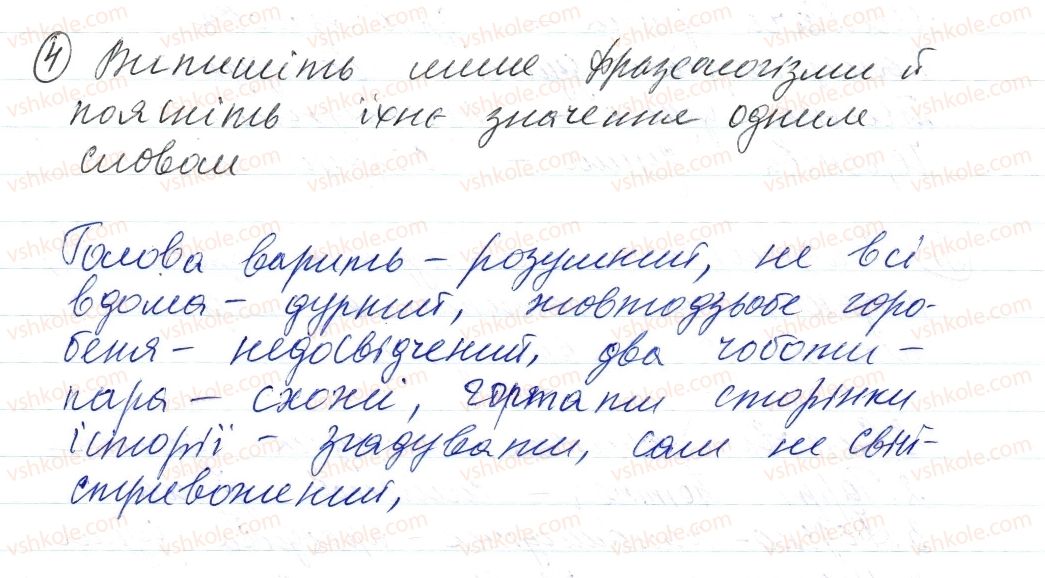 4 Випишіть лише фразеологізми й
поясніть їхнє значення одним
словом
Голова варить – розумний, не всі
вдома – дурний, жовтодзьобе горо-
беня – недосвідчений, два чоботи –
пара – схожі, гортати сторінки
історії – згадувати, сам не свій –
стривожений,